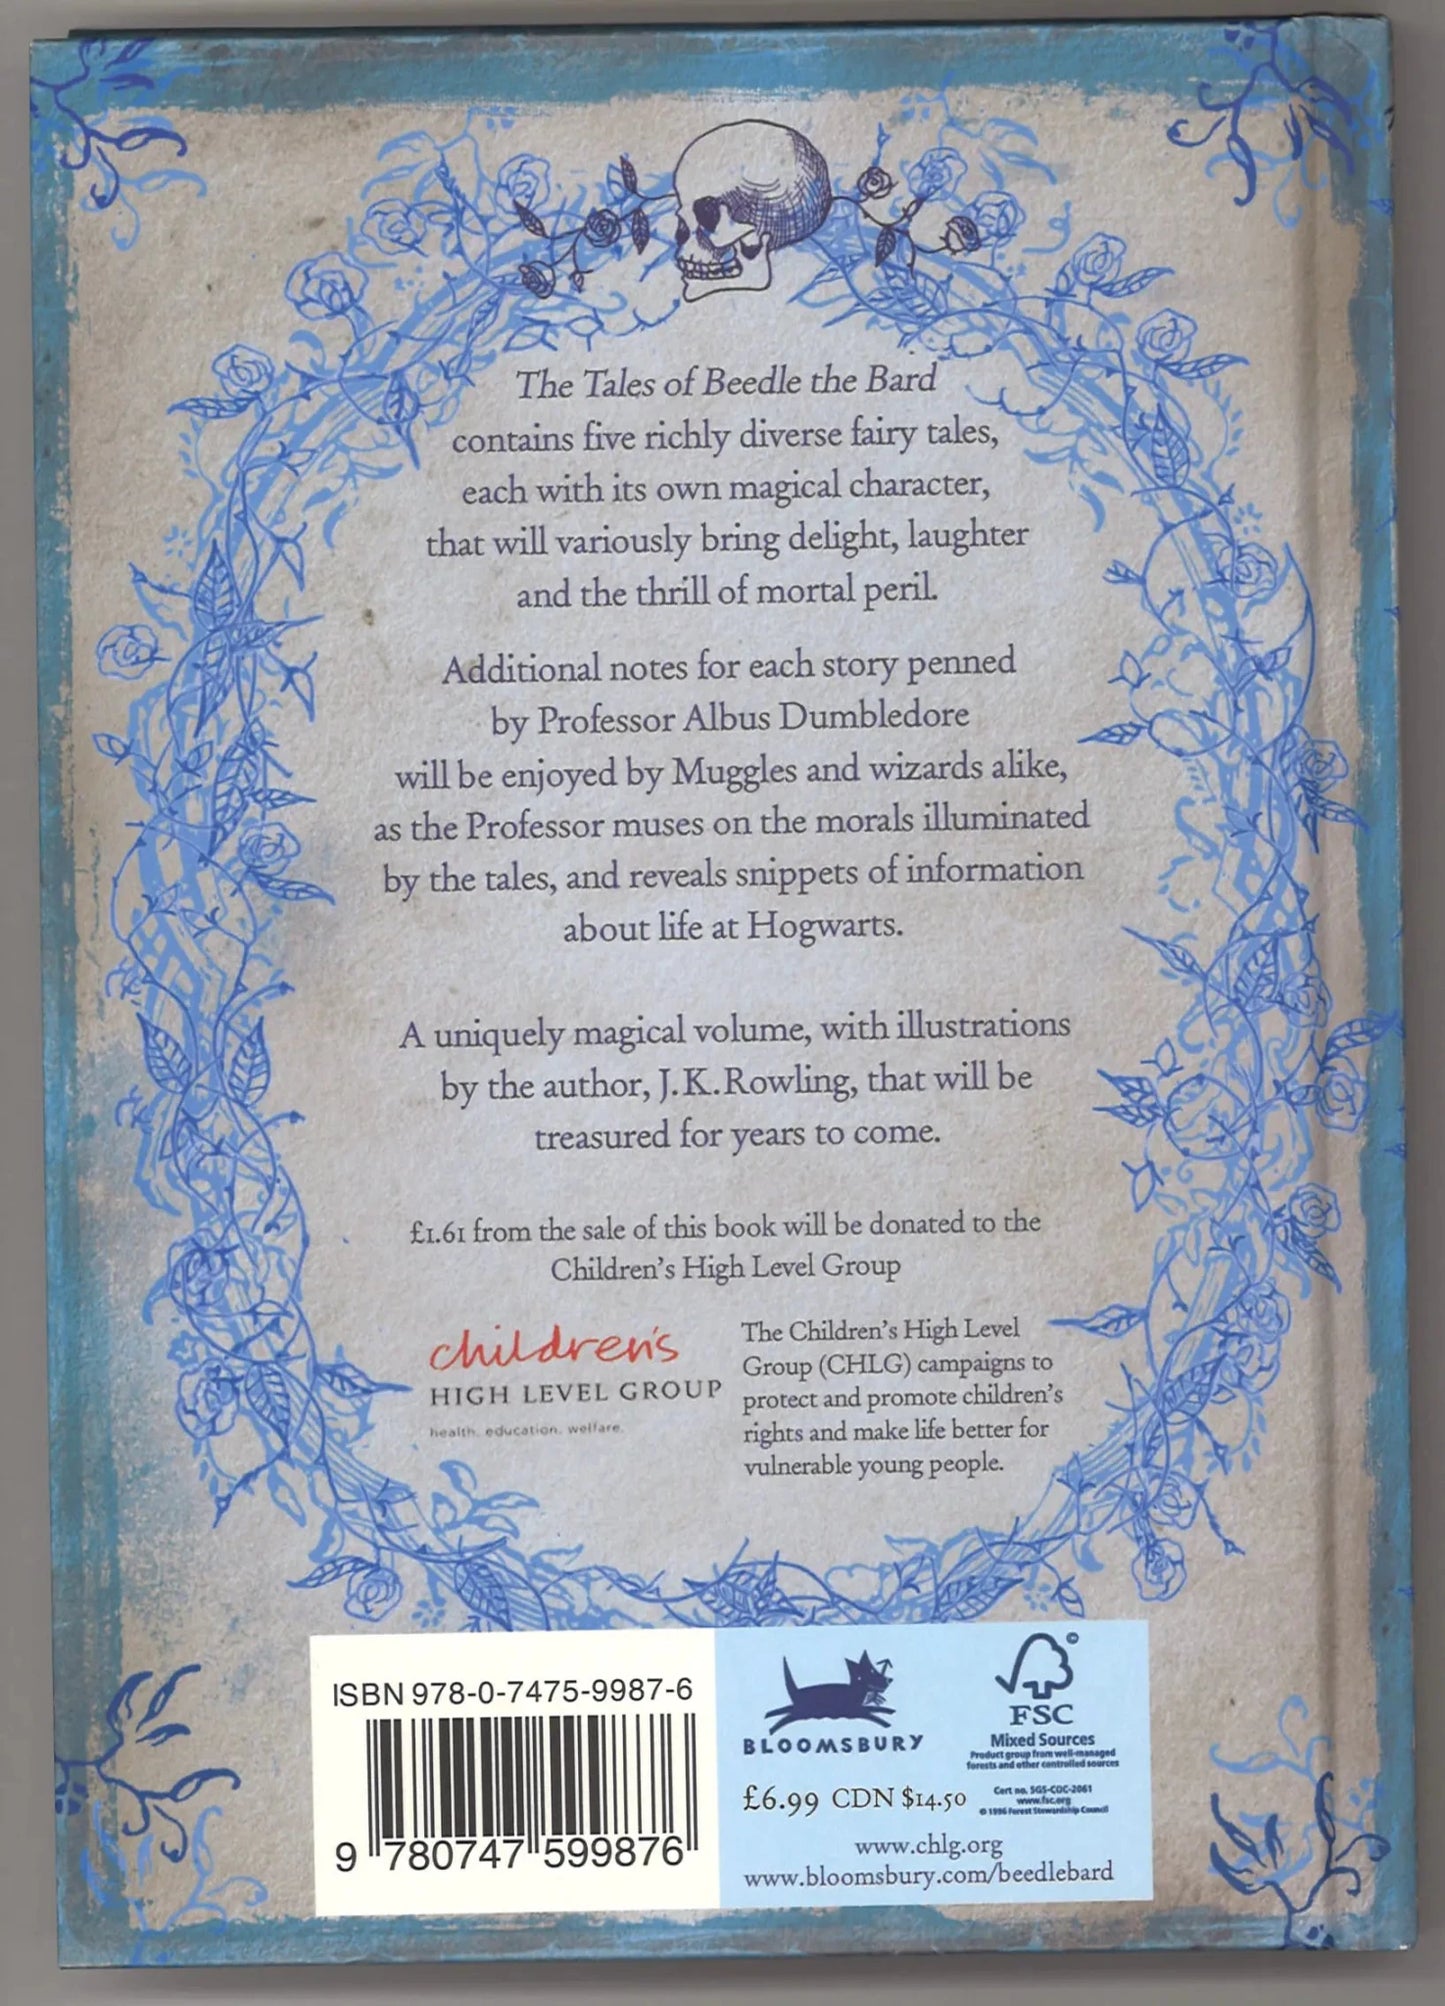 The Tales of Beedle the Bard
contains five richly diverse fairy tales,
each with its own magical character,
that will variously bring delight, laughter
and the thrill of mortal peril.
Additional notes for each story penned
by Professor Albus Dumbledore
will be enjoyed by Muggles and wizards alike,
as the Professor muses on the morals illuminated
by the tales, and reveals snippets of information
about life at Hogwarts.
A uniquely magical volume, with illustrations
by the author, J.K.Rowling, that will be
treasured for years to come.
£1.61 from the sale of this book will be donated to the
Children's High Level Group
children's
HIGH LEVEL GROUP
health. education. welfare.
The Children's High Level
Group (CHLG) campaigns to
protect and promote children's
rights and make life better for
vulnerable young people.
ISBN 978-0-7475-9987-6
9 780747 599876
BLOOMSBURY
£6.99 CDN $14.50
©
FSC
Mixed Sources
Product group from well-managed
forests and other controlled sources
Cert no. SGS-COC-2061
www.fsc.org
© 1996 Forest Stewardship Council
www.chlg.org
www.bloomsbury.com/beedlebard